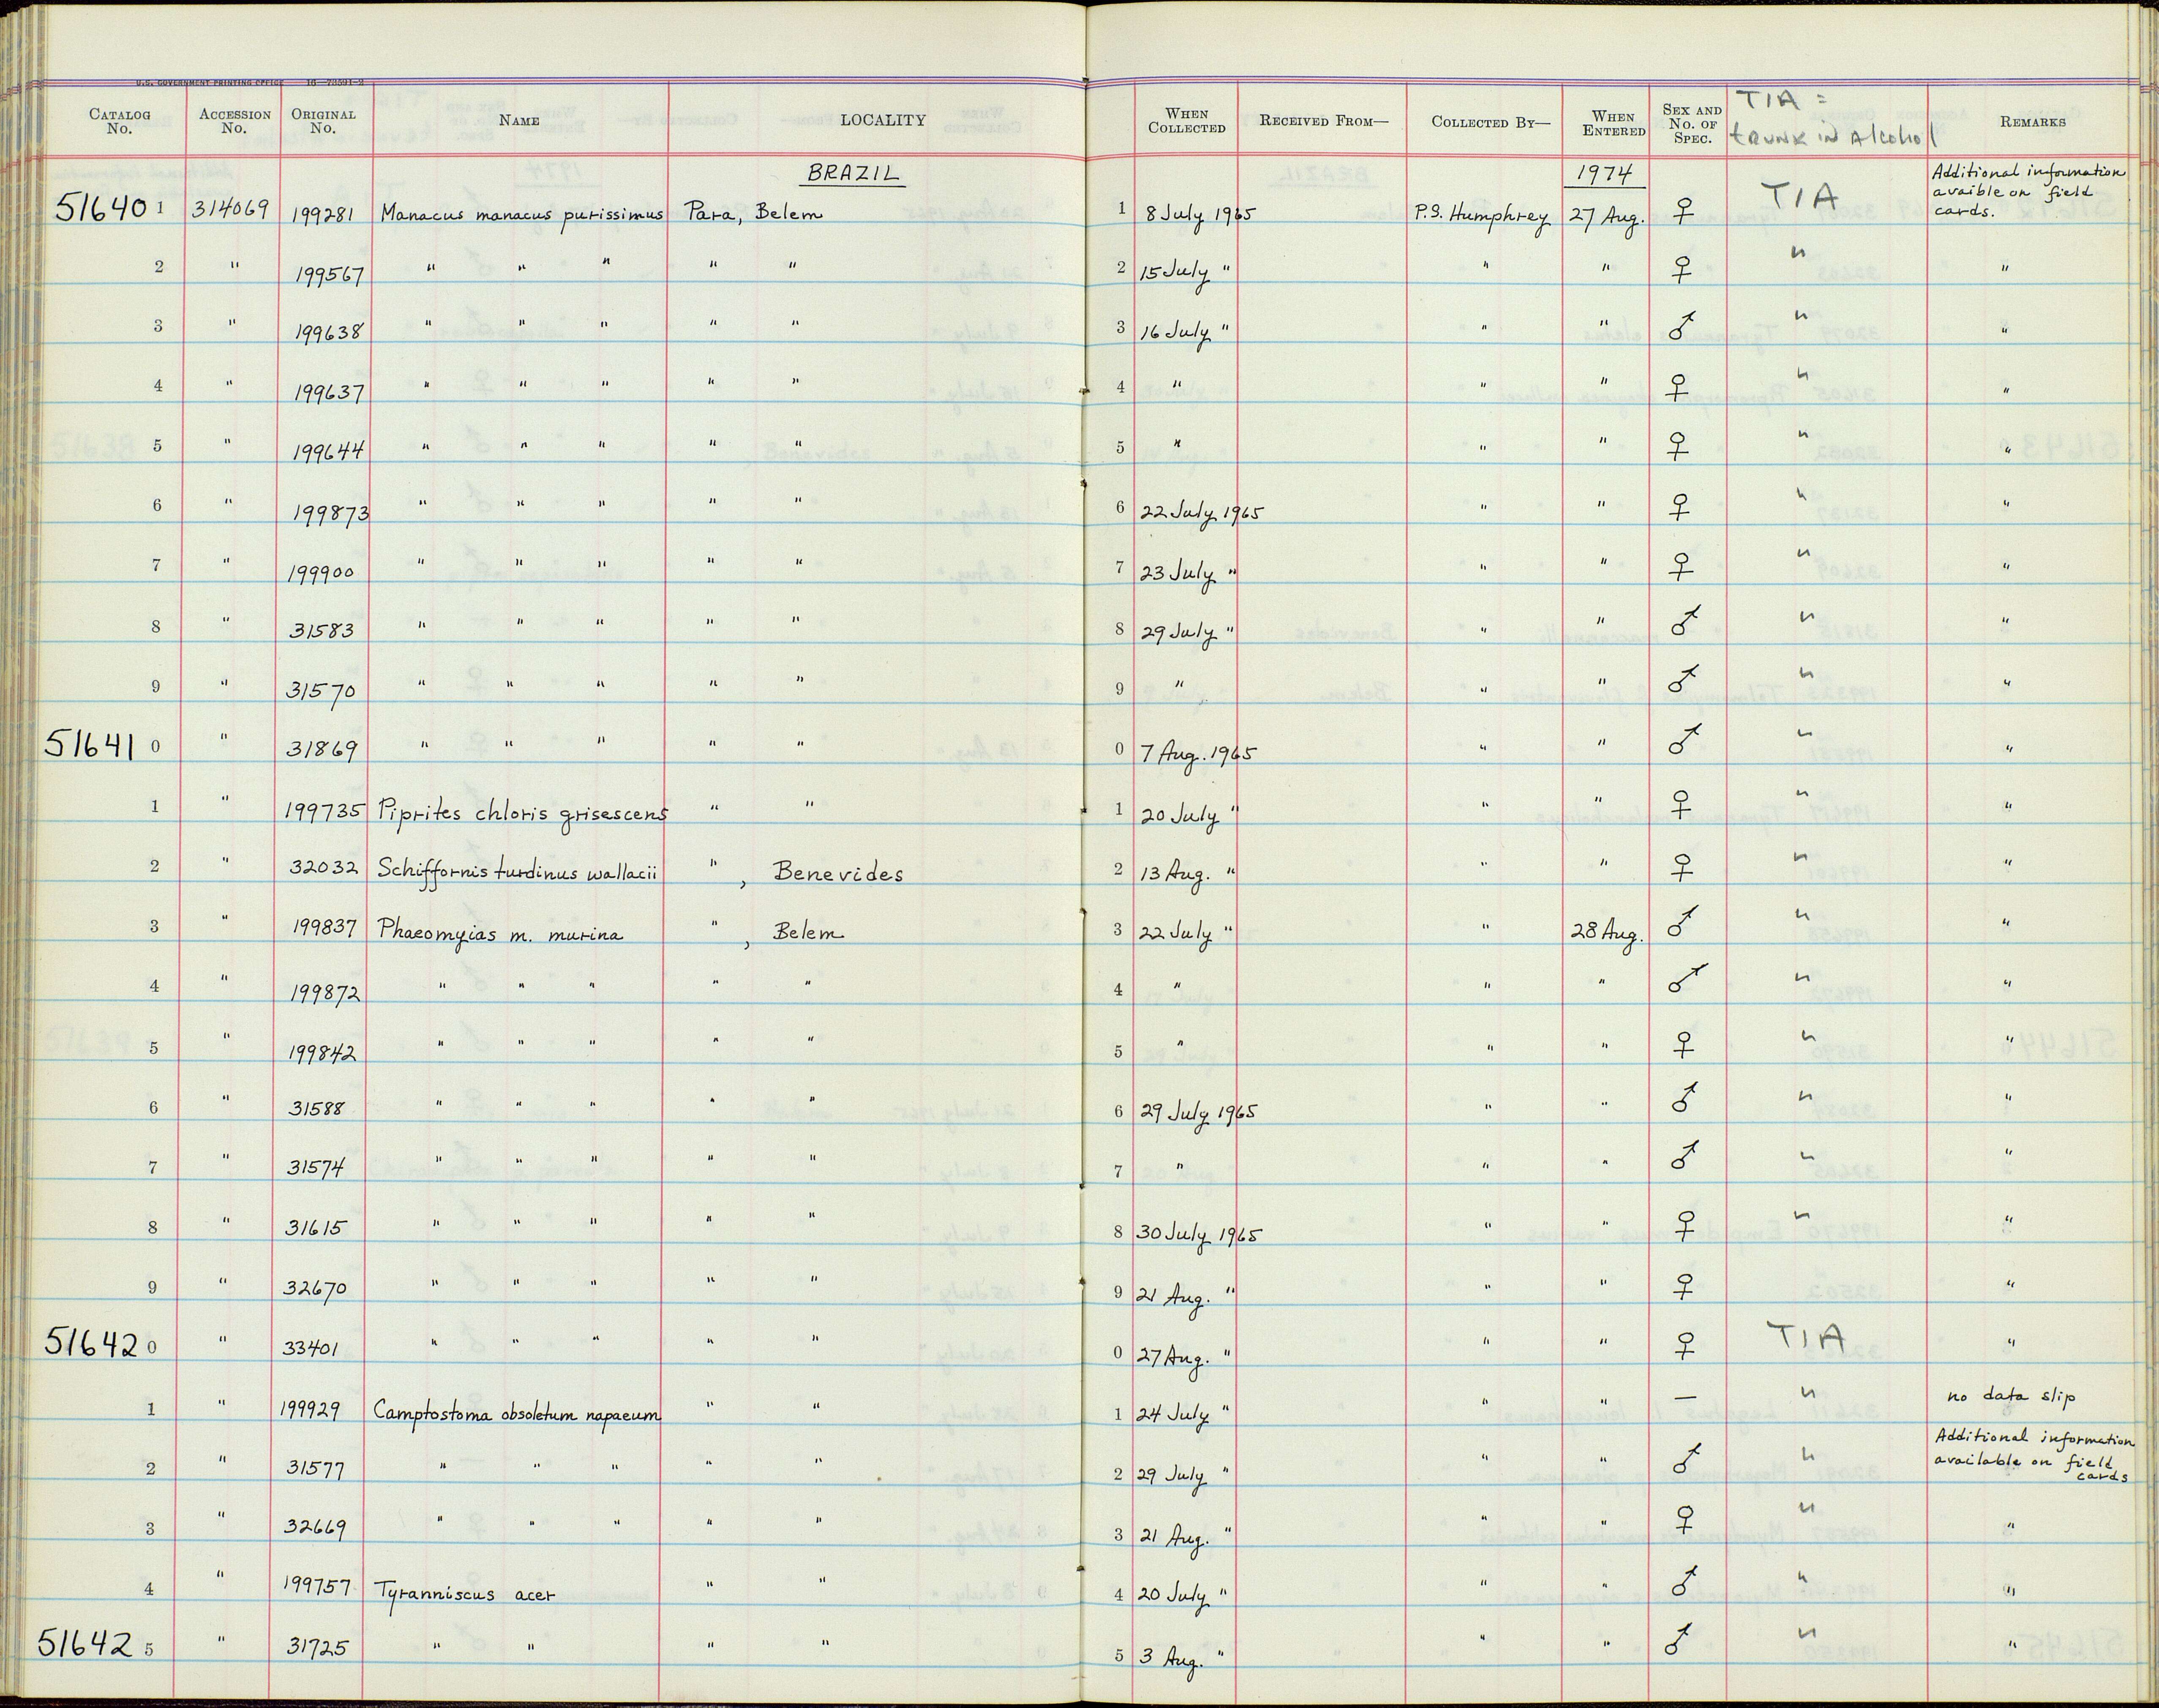 U.S. GOVERNMENT PRINTING OFFICE 16—73591-2
CATALOG No. ACCESSION No. ORIGINAL No. NAME LOCALITY WHEN COLLECTED RECEIVED FROM— COLLECTED BY— WHEN ENTERED SEX AND No. OF SPEC. TIA = trunk in Alcohol REMARKS
BRAZIL 1974
51640 1 314069 199281 Manacus manacus purissimus Para, Belem 1 8 July 1965 P.S. Humphrey 27 Aug. ♀ TIA Additional information avaible on field cards.
2 " 199567 " " " " " 2 15 July " " " ♀ " "
3 " 199638 " " " " " 3 16 July " " " ♂ " "
4 " 199637 " " " " " 4 " " " ♀ " "
5 " 199644 " " " " " 5 " " " ♀ " "
6 " 199873 " " " " " 6 22 July 1965 " " ♀ " "
7 " 199900 " " " " " 7 23 July " " " ♀ " "
8 " 31583 " " " " " 8 29 July " " " ♂ " "
9 " 31570 " " " " " 9 " " " ♂ " "
51641 0 " 31869 " " " " " 0 7 Aug. 1965 " " ♂ " "
1 " 199735 Piprites chloris grisescens " " 1 20 July " " " ♀ " "
2 " 32032 Schiffornis turdinus wallacii " , Benevides 2 13 Aug. " " " ♀ " "
3 " 199837 Phaeomyias m. murina " , Belem 3 22 July " " 28 Aug. ♂ " "
4 " 199872 " " " " " 4 " " " ♂ " "
5 " 199842 " " " " " 5 " " " ♀ " "
6 " 31588 " " " " " 6 29 July 1965 " " ♂ " "
7 " 31574 " " " " " 7 " " " ♂ " "
8 " 31615 " " " " " 8 30 July 1965 " " ♀ " "
9 " 32670 " " " " " 9 21 Aug. " " " ♀ " "
51642 0 " 33401 " " " " " 0 27 Aug. " " " ♀ TIA "
1 " 199929 Camptostoma obsoletum napaeum " " 1 24 July " " " — " no data slip
2 " 31577 " " " " " 2 29 July " " " ♂ " Additional information available on field cards
3 " 32669 " " " " " 3 21 Aug. " " " ♀ " "
4 " 199757 Tyranniscus acer " " 4 20 July " " " ♂ " "
51642 5 " 31725 " " " " 5 3 Aug. " " " ♂ " "